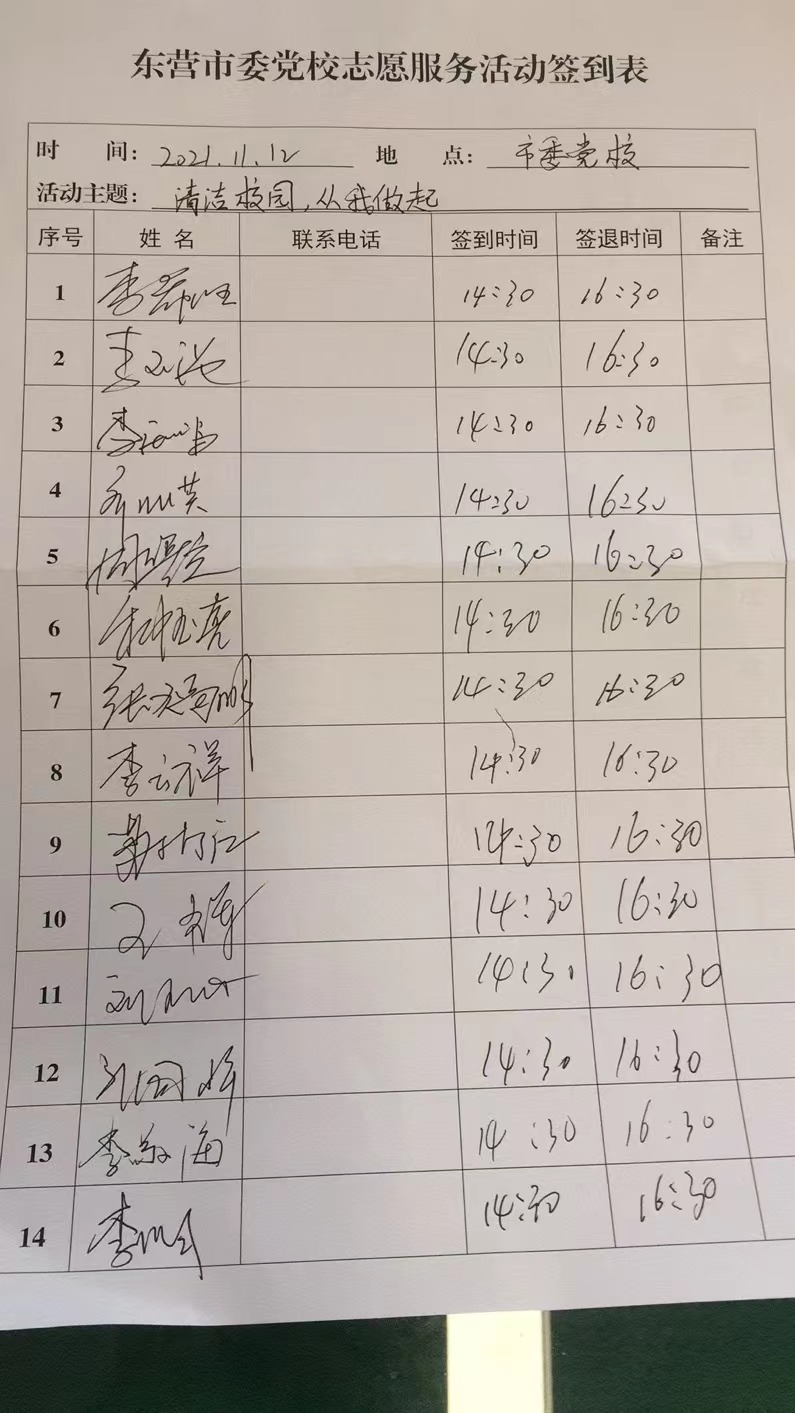 东营市委党校志愿服务活动签到表
时 间: 2021.11.12 地 点: 市委党校
活动主题: 清洁校园,从我做起
序号 姓名 联系电话 签到时间 签退时间 备注
1 李 14:30 16:30
2 14:30 16:30
3 李 14:30 16:30
4 英 14:30 16:30
5 14:30 16:30
6 亮 14:30 16:30
7 张 14:30 16:30
8 李云祥 14:30 16:30
9 14:30 16:30
10 14:30 16:30
11 刘 14:30 16:30
12 14:30 16:30
13 李 海 14:30 16:30
14 李 14:30 16:30